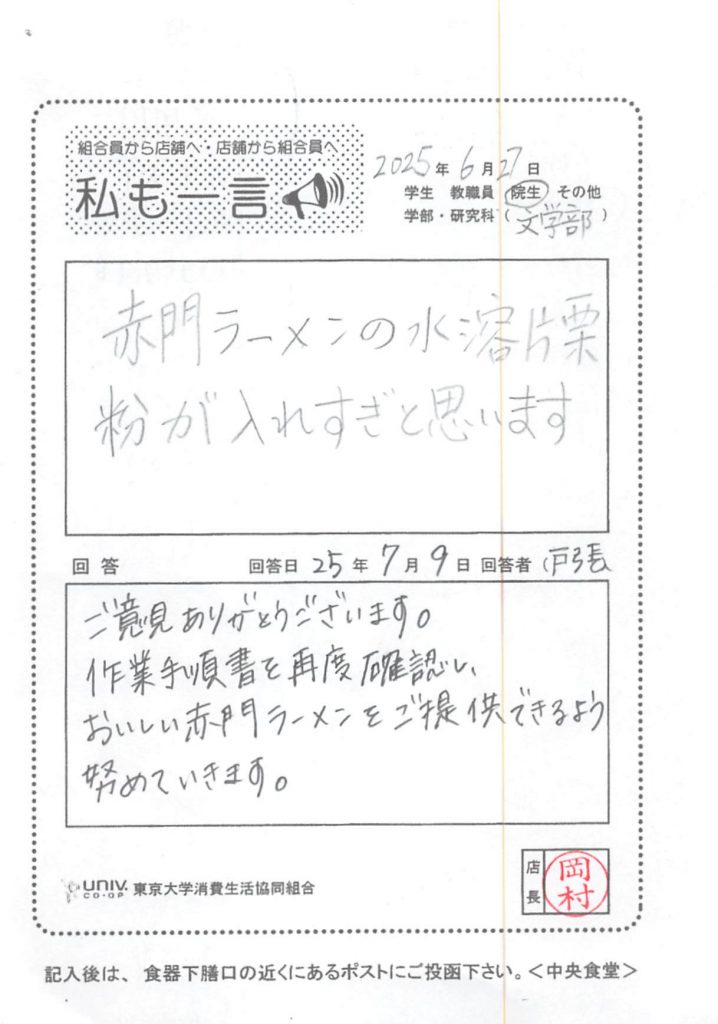 組合員から店舗へ・店舗から組合員へ
私も一言
2025年6月27日
学生 教職員 院生 その他
学部・研究科(文学部)
赤門ラーメンの水溶片栗
粉が入れすぎと思います
回答 回答日 25年7月9日 回答者 戸張
ご意見ありがとうございます。
作業手順書を再度確認し、
おいしい赤門ラーメンをご提供できるよう
努めていきます。
UNIV.
CO-OP
東京大学消費生活協同組合
店長
岡村
記入後は、食器下膳口の近くにあるポストにご投函下さい。<中央食堂>